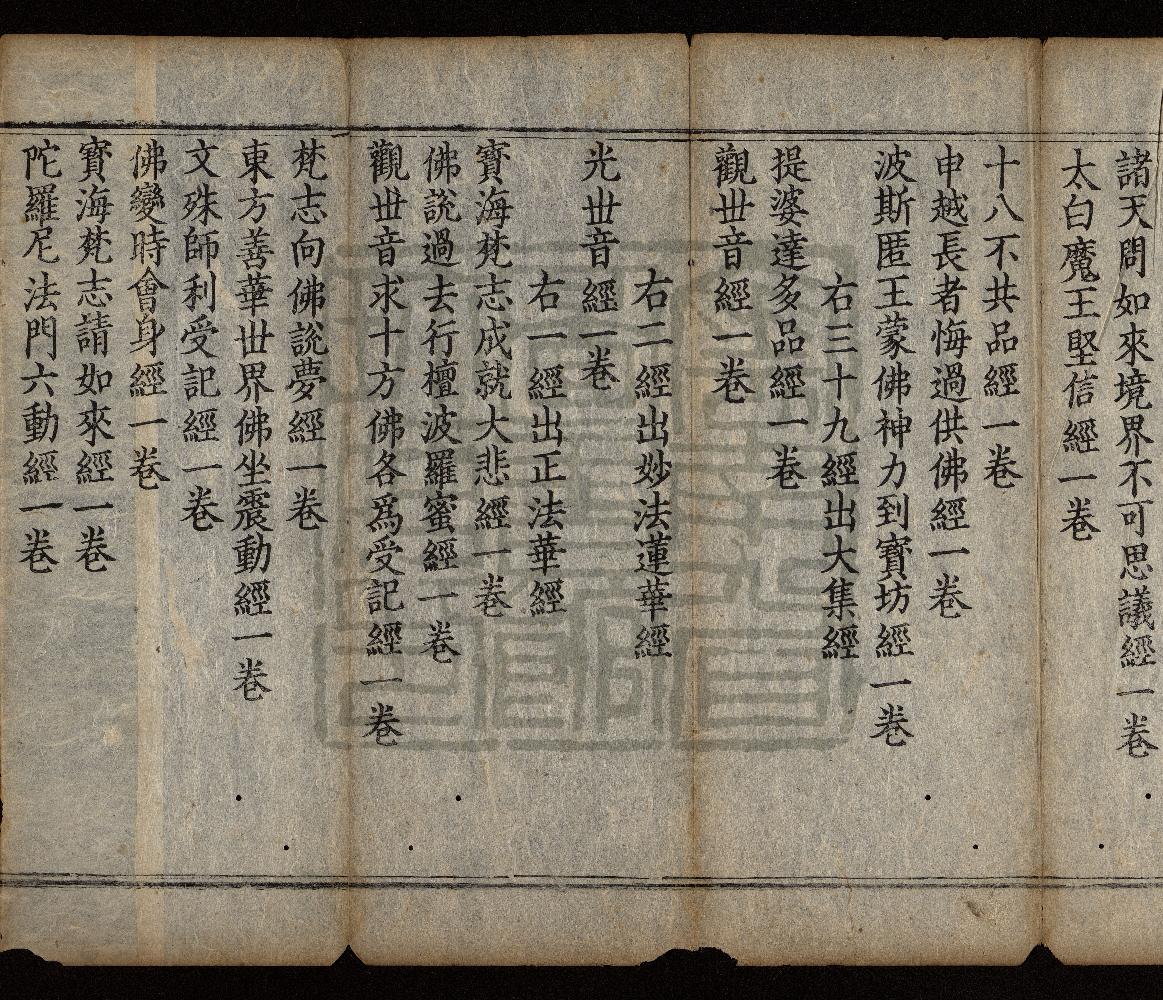 諸天問如來境界不可思議經一卷
太白魔王堅信經一卷
十八不共品經一卷
申越長者悔過供佛經一卷
波斯匿王蒙佛神力到寶坊經一卷
右三十九經出大集經
提婆達多品經一卷
觀世音經一卷
右二經出妙法蓮華經
光世音經一卷
右一經出正法華經
寶海梵志成就大悲經一卷
佛說過去行檀波羅蜜經一卷
觀世音求十方佛各爲受記經一卷
梵志向佛說夢經一卷
東方善華世界佛坐震動經一卷
文殊師利受記經一卷
佛變時會身經一卷
寶海梵志請如來經一卷
陀羅尼法門六動經一卷